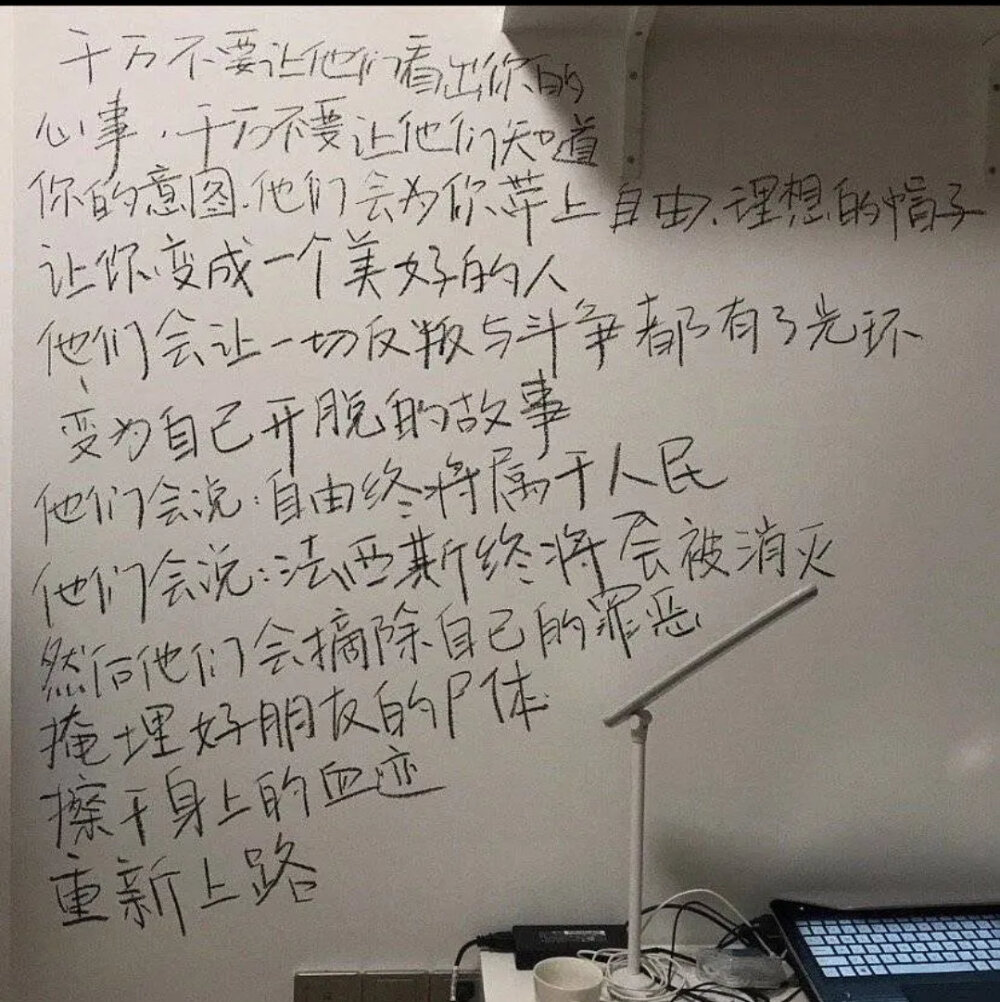 千万不要让他们看出你的
心事，千万不要让他们知道
你的意图.他们会为你带上自由、理想的帽子
让你变成一个美好的人
他们会让一切反叛与斗争都有了光环
变为自己开脱的故事
他们会说：自由终将属于人民
他们会说：法西斯终将会被消灭
然后他们会摘除自己的罪恶
掩埋好朋友的尸体
擦干身上的血迹
重新上路